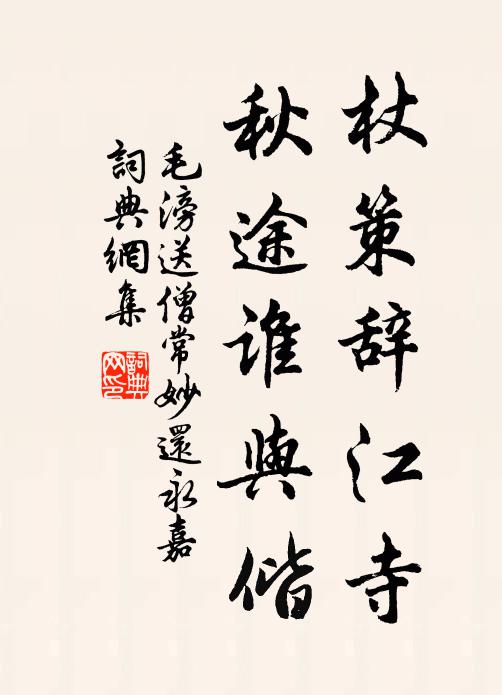 杖策辞江寺
秋途谁與偕
毛滂送僧常妙還永嘉
詞典網集
詞典网印